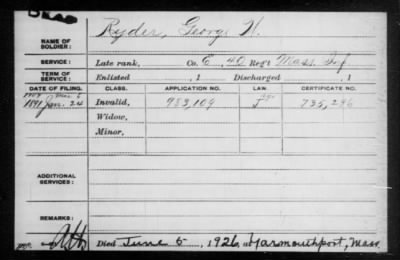 DEAD
NAME OF SOLDIER: Ryder, George N.
SERVICE: Late rank, Co. E, 40 Reg't Mass. Inf
TERM OF SERVICE: Enlisted , 1 Discharged , 1
DATE OF FILING. CLASS. APPLICATION NO. LAW. CERTIFICATE NO.
1891 Jan. 24 Invalid, 983,109 735,296
Widow,
Minor,
ADDITIONAL SERVICES:
REMARKS:
Died June 5, 1926, at Yarmouthport, Mass.